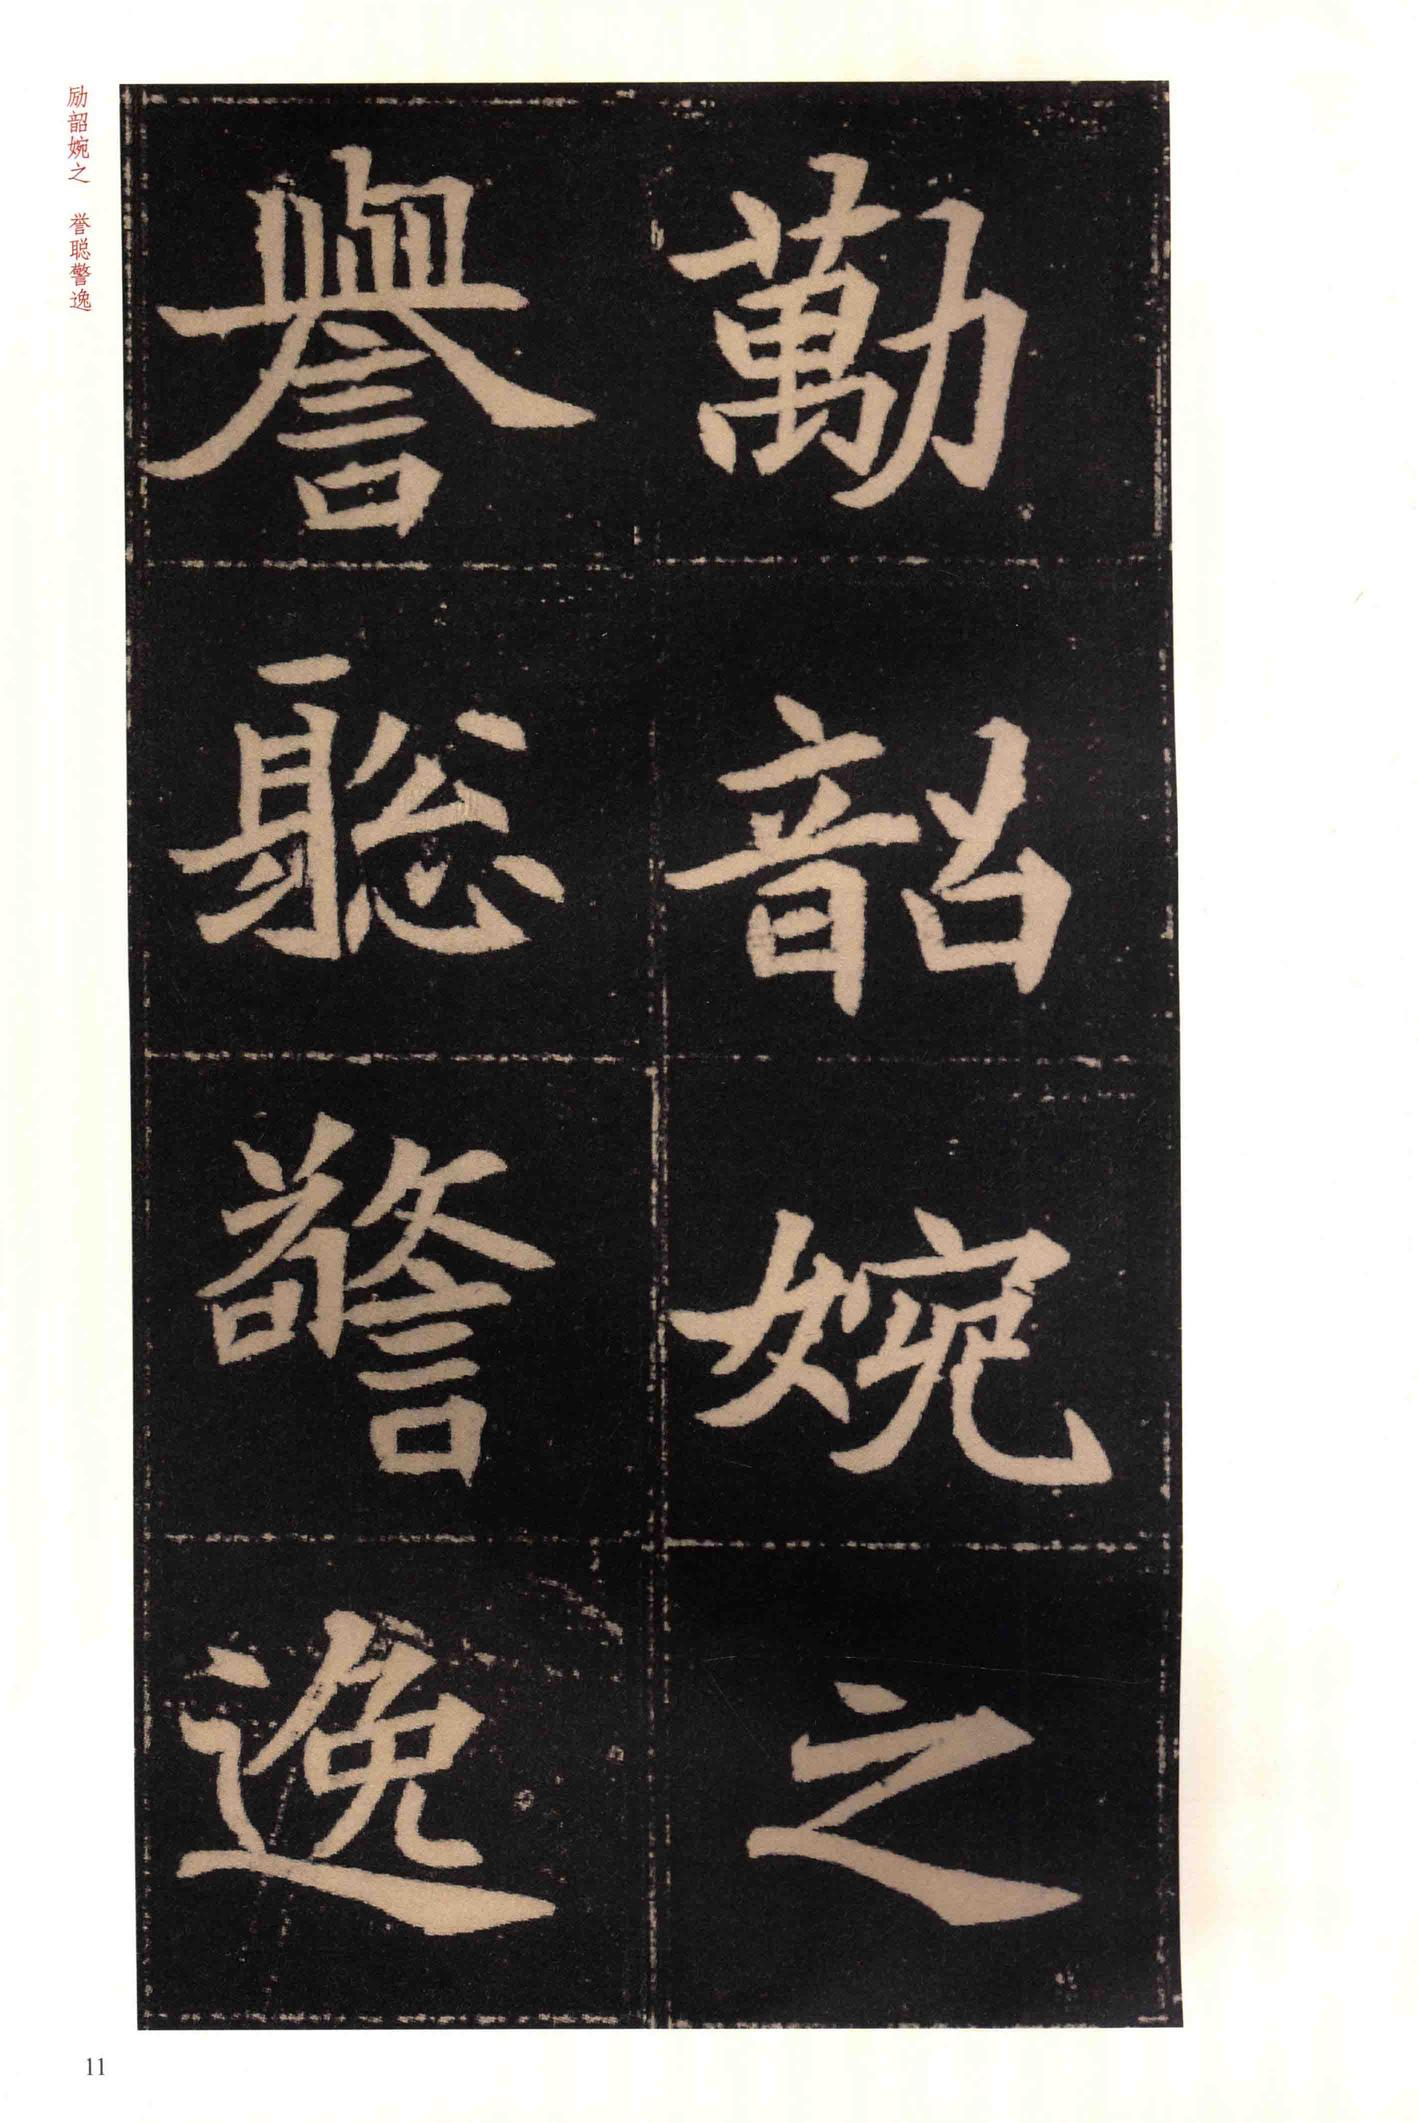 勱韶婉之
譽聡警逸
励韶婉之 誉聪警逸
11